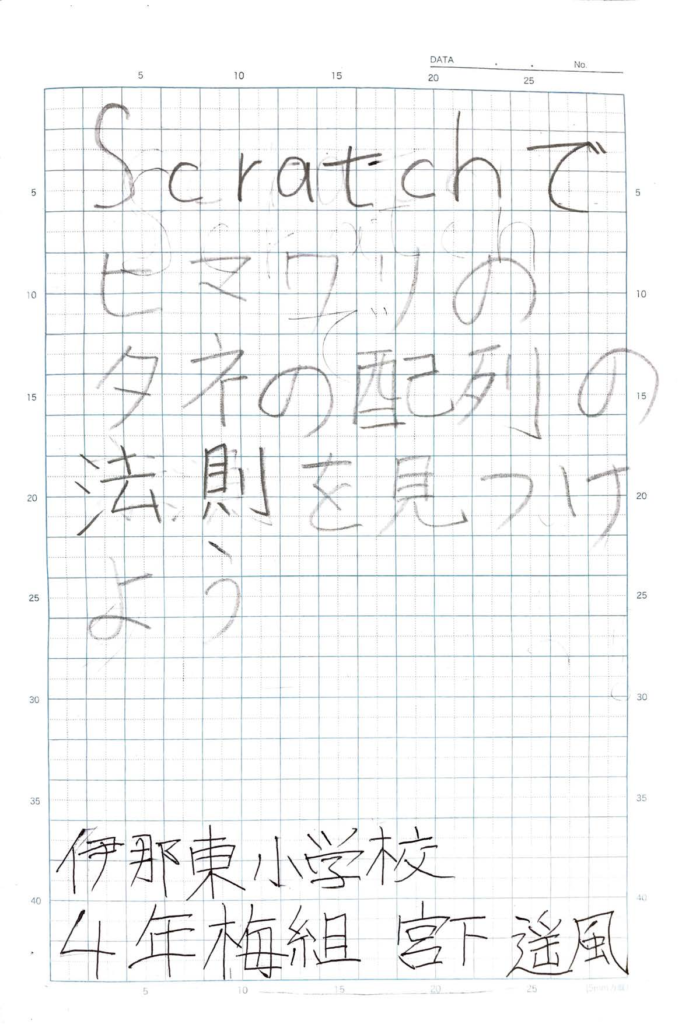 DATA
No.
5 10 15 20 25
Scratchで
5 5
ヒマワリの
10 10
タネの配列の
15 15
法則を見つけ
20 20
よう
25 25
30 30
35 35
伊那東小学校
40 40
4年梅組 宮下 遥風
5 10 15 20 25